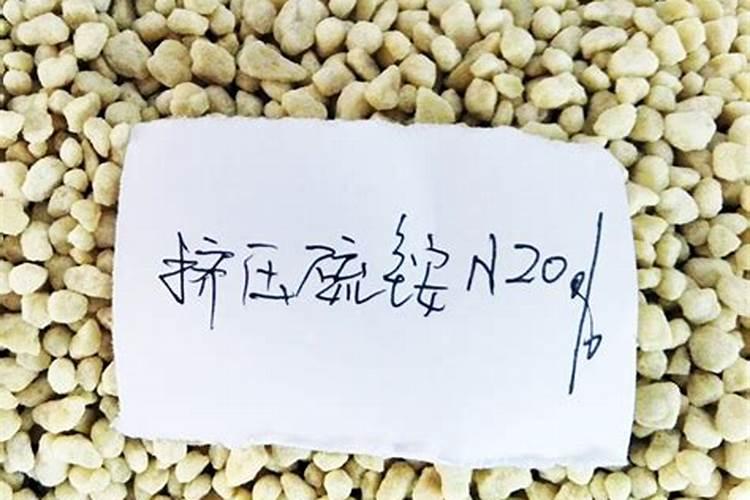 挤压硫铵N20%